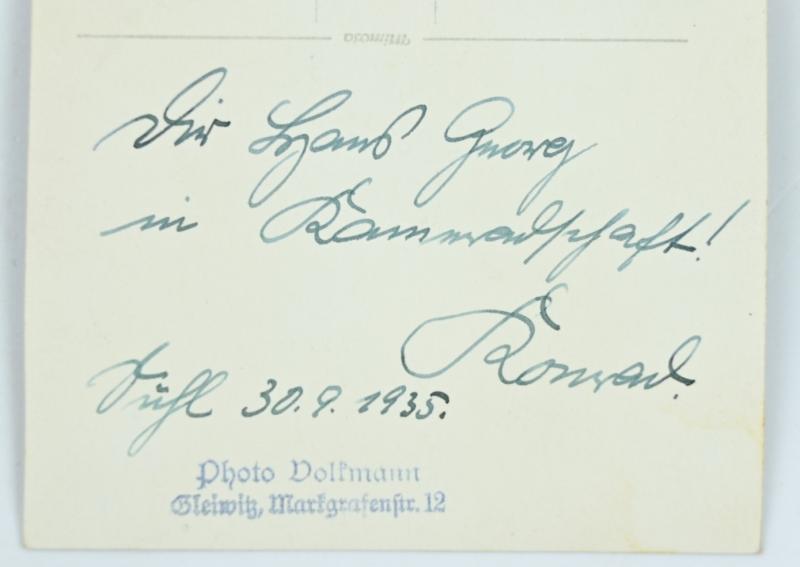 Mimosa
Dir Hans Georg
in Kameradschaft!
Konrad.
Suhl 30.9.1935.
Photo Volkmann
Gleiwitz, Markgrafenstr. 12